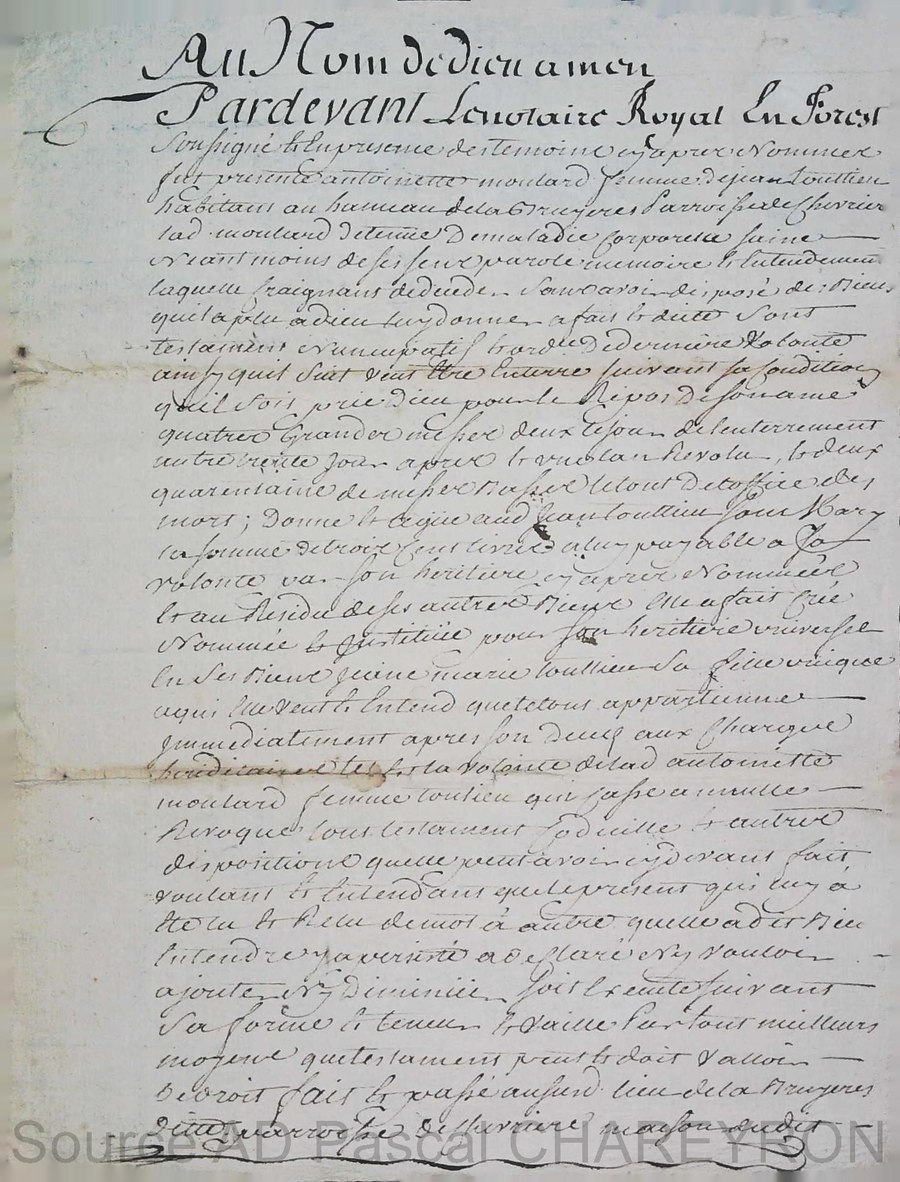 Au Nom de dieu amen
Pardevant Le notaire Royal En Forest
Soussigné et En presence des temoins cy apres Nommez
fut presente antoinette moulard femme de jean touttien
habitans au hameau de la Bruyeres Parroisse de Chevrier
lad. moulard detenue De maladie Corporelle saine
Neant moins de ses sens parole memoire et Entendement
laquelle Craignans de deceder Sans avoir disposé des Biens
quil a plu a dieu luy donner a fait et dicté Sont
testament Nuncupatif et ord.re De derniere Volonté
ainsy quil Suit veut Etre Enterré suivant sa Condition
quil Soit prié Dieu pour le Repos De son ame
quatres Grandes messes deux le jour de lenterrement
autre trente jour apres et une lan Revolu, et deux
quarentaine de messes Basses le tout De loffice des
morts; Donne et legue aud. jean touttien Son Mary
la somme de trois Cent livres a luy payable a Sa
volonté par son heritiere cy apres Nommée
Et au Residu de ses autres Biens Elle a fait Créé
Nommée et Justituée pour son heritiere universel
En Ses Biens jeane marie touttien Sa fille unique
a qui Elle veut et Entend que le tous appartienne
jmmediatement apres son Deces aux Charges
hereditaires tel est la volonté de lad. antoinette
moulard femme toutien qui Casse annulle
Revoque tous testament Codicille et autres
dispositions quelle peut avoir cy devant fait
voulant et Entendans que le present qui luy à
Eté lu et Relu de mot à autre quelle a dit Bien
Entendre y a persisté a declaré N'y vouloir
ajouter N'y Diminuer soit Executé suivant
Sa forme et teneur et vaille Par tout meilleurs
moyens que testament peut et doit valloir
De droit fait et passé aususd. lieu de la Bruyeres
ditte parroisse de Chevrieres maison dudit
Source AD Pascal CHAREYRON